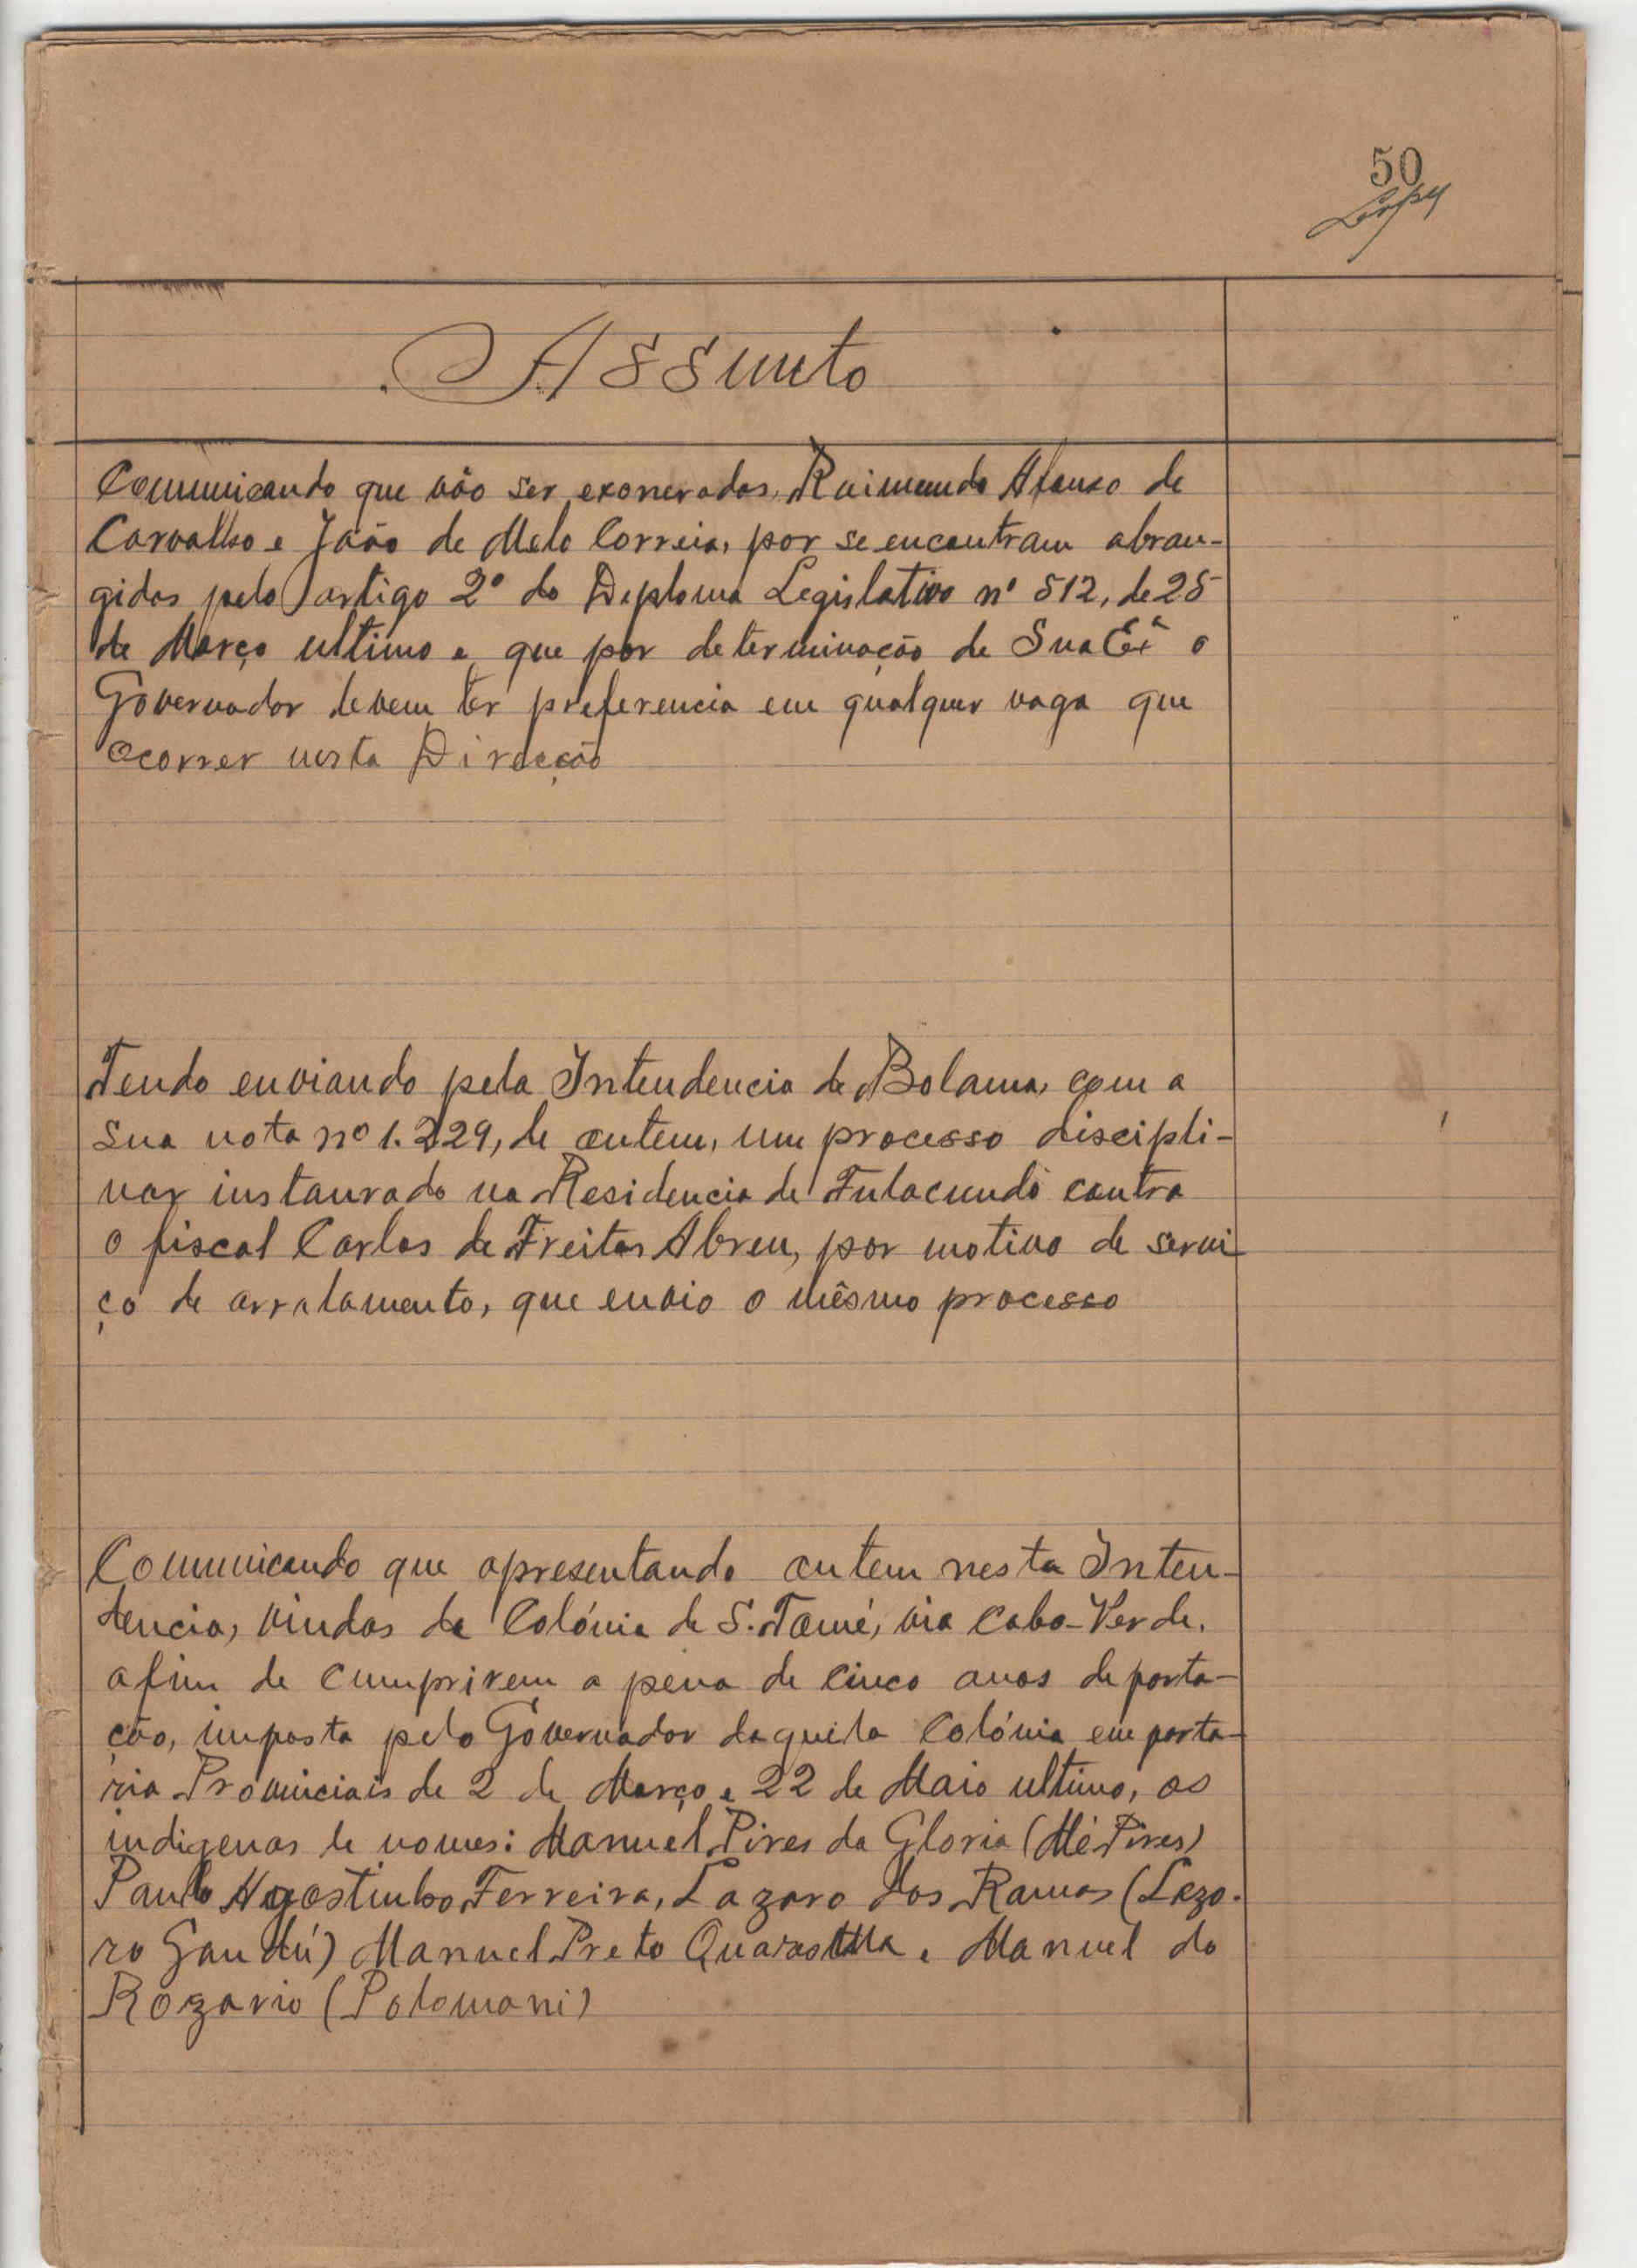 50
Assunto
Comunicando que vão ser exonerados, Raimundo Afonso de
Carvalho e João de Melo Correia, por se encontram abran-
gidos pelo artigo 2º do Diploma Legislativo nº 512, de 25
de Março ultimo e que por determinação de Sua Exª o
Governador devem ter preferencia em qualquer vaga que
ocorrer nesta Direcção
Tendo enviando pela Intendencia de Bolama, com a
sua nota nº 1.229, de ontem, um processo discipli-
nar instaurado na Residencia de Fulacundo contra
o fiscal Carlos de Freitas Abreu, por motivo de servi
ço de arrolamento, que envio o mêsmo processo
Comunicando que apresentando ontem nesta Inten-
dencia, vindos da Colónia de S. Tomé, via Cabo-Verde,
afim de cumprirem a pena de cinco anos deporta-
ção, imposta pelo Governador daquela Colónia em porta-
ria Provinciais de 2 de Março e 22 de Maio ultimo, os
indigenas de nomes: Manuel Pires da Gloria (Mé Pires)
Paulo Agostinho Ferreira, Lazaro dos Ramos (Lazo.
ro Gandú) Manuel Preto Quaresma e Manuel do
Rozario (Polomani)